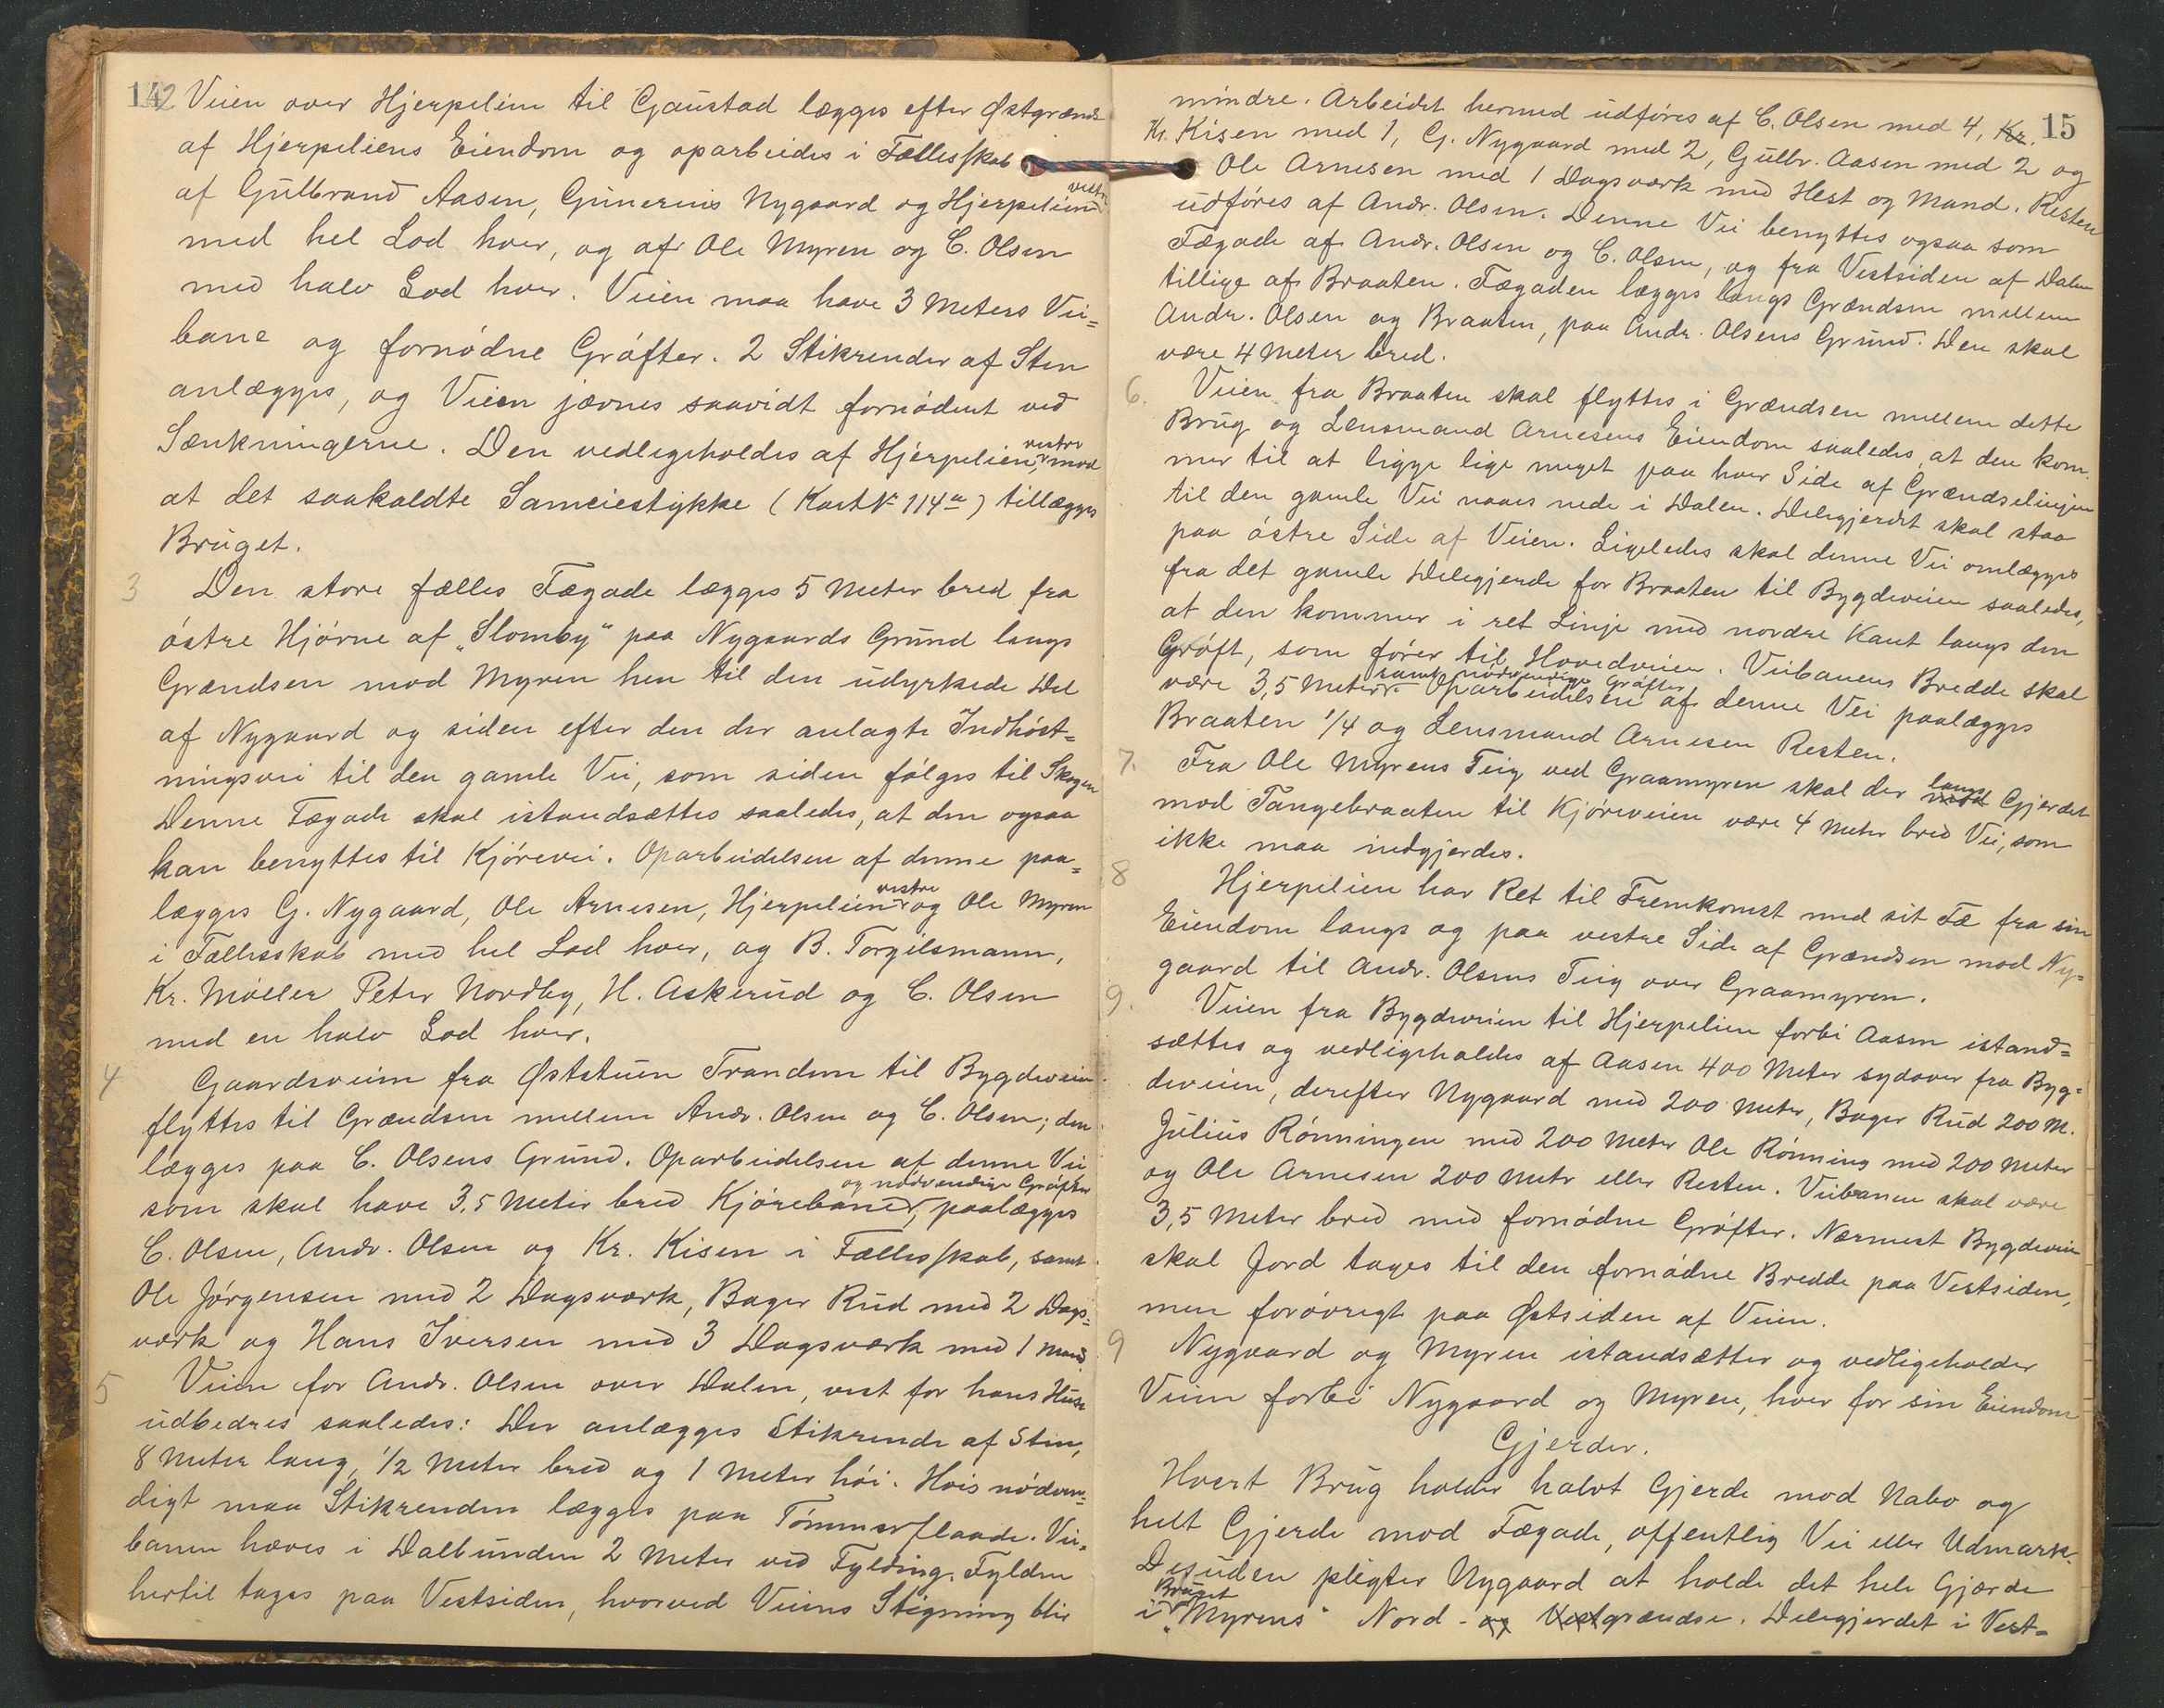 14
2 Veien over Hjerpelien til Gaustad lægges efter Østgrændse
af Hjerpeliens Eiendom og oparbeides i Fællesskab
af Gulbrand Aasen, Gunerius Nygaard og Hjerpelien vestre
med hel Lod hver, og af Ole Myren og C. Olsen
med halv Lod hver. Veien maa have 3 Meters Vei=
bane og fornødne Grøfter. 2 Stikrender af Sten
anlægges, og Veien jævnes saavidt fornødent ved
Sænkningerne. Den vedligeholdes af Hjerpelien, vestre mod
at det saakaldte Sameiestykke (Kart No 114a) tillægges
Bruget.
3 Den store fælles Fægade lægges 5 Meter bred fra
østre Hjørne af „Slomby“ paa Nygaards Grund langs
Grændsen mod Myren hen til den udyrkede Del
af Nygaard og siden efter den der anlagte Indhøst=
ningsvei til den gamle Vei, som siden følges til Skogen
Denne Fægade skal istandsættes saaledes, at den ogsaa
kan benyttes til Kjørevei. Oparbeidelsen af denne paa=
lægges G. Nygaard, Ole Arnesen, Hjerpelien vestre og Ole Myren
i Fællesskab med hel Lod hver, og B. Torgilsmann,
Kr. Møller Peter Nordby, H. Askerud og C. Olsen
med en halv Lod hver.
4 Gaardsveien fra Øststuen Trandem til Bygdeveien
flyttes til Grændsen mellem Andr. Olsen og C. Olsen; den
lægges paa C. Olsens Grund. Oparbeidelsen af denne Vei
som skal have 3,5 Meter bred Kjørebane og nødvendige Grøfter, paalægges
C. Olsen, Andr. Olsen og Kr. Kisen i Fællesskab, samt
Ole Jørgensen med 2 Dagsværk, Bager Rud med 2 Dags=
værk og Hans Iversen med 3 Dagsværk med 1 Mand.
5 Veien for Andr. Olsen over Dalen, vest for hans Huse
udbedres saaledes: Der anlægges Stikrende af Sten,
8 Meter lang, 1/2 Meter bred og 1 Meter høi. Hvis nødven=
digt maa Stikrenden lægges paa Tømmerflaade. Vei=
banen hæves i Dalbunden 2 Meter ved Fylding. Fylden
hertil tages paa Vestsiden, hvorved Veiens Stigning blir
15
mindre. Arbeidet hermed udføres af C. Olsen med 4, Kr.
Kr. Kisen med 1, G. Nygaard med 2, Gulbr. Aasen med 2 og
Ole Arnesen med 1 Dagsværk med Hest og Mand. Resten
udføres af Andr. Olsen. Denne Vei benyttes ogsaa som
Fægade af Andr. Olsen og C. Olsen, og fra Vestsiden af Dalen
tillige af Braaten. Fægaden lægges langs Grændsen mellem
Andr. Olsen og Braaten, paa Andr. Olsens Grund. Den skal
være 4 Meter bred.
6. Veien fra Braaten skal flyttes i Grændsen mellem dette
Brug og Lensmand Arnesens Eiendom saaledes, at den kom=
mer til at ligge lige meget paa hver Side af Grændselinjen
til den gamle Vei naaes nede i Dalen. Delegjerdet skal staa
paa østre Side af Veien. Ligeledes skal denne Vei omlægges
fra det gamle Delegjerde for Braaten til Bygdeveien saaledes,
at den kommer i ret Linje med nordre Kant langs den
Grøft, som fører til Hovedveien. Veibanens Bredde skal
være 3,5 Meter samt nødvendige Grøfter. Oparbeidelsen af denne Vei paalægges
Braaten 1/4 og Lensmand Arnesen Resten.
7. Fra Ole Myrens Teig ved Graamyren skal der langs mod Gjerdet
mod Tangebraaten til Kjøreveien være 4 Meter bred Vei, som
ikke maa indgjerdes.
8 Hjerpelien har Ret til Fremkomst med sit Fæ fra sin
Eiendom langs og paa vestre Side af Grændsen mod Ny=
gaard til Andr. Olsens Teig over Graamyren.
9. Veien fra Bygdeveien til Hjerpelien forbi Aasen istand=
sættes og vedligeholdes af Aasen 400 Meter sydover fra Byg=
deveien, derefter Nygaard med 200 Meter, Bager Rud 200 M.
Julius Rønningen med 200 Meter Ole Rønning med 200 Meter
og Ole Arnesen 200 Metr eller Resten. Veibanen skal være
3,5 Meter bred med fornødne Grøfter. Nærmest Bygdeveien
skal Jord tages til den fornødne Bredde paa Vestsiden,
men forøvrigt paa Østsiden af Veien.
9 Nygaard og Myren istandsætter og vedligeholder
Veien forbi Nygaard og Myren, hver for sin Eiendom
Gjerder.
Hvert Brug holder halvt Gjerde mod Nabo og
helt Gjerde mod Fægade, offentlig Vei eller Udmark.
Desuden pligter Nygaard at holde det hele Gjærde
i Bruget „Myrens“ Nord- og Vestgrændse. Delegjerdet i Vest=